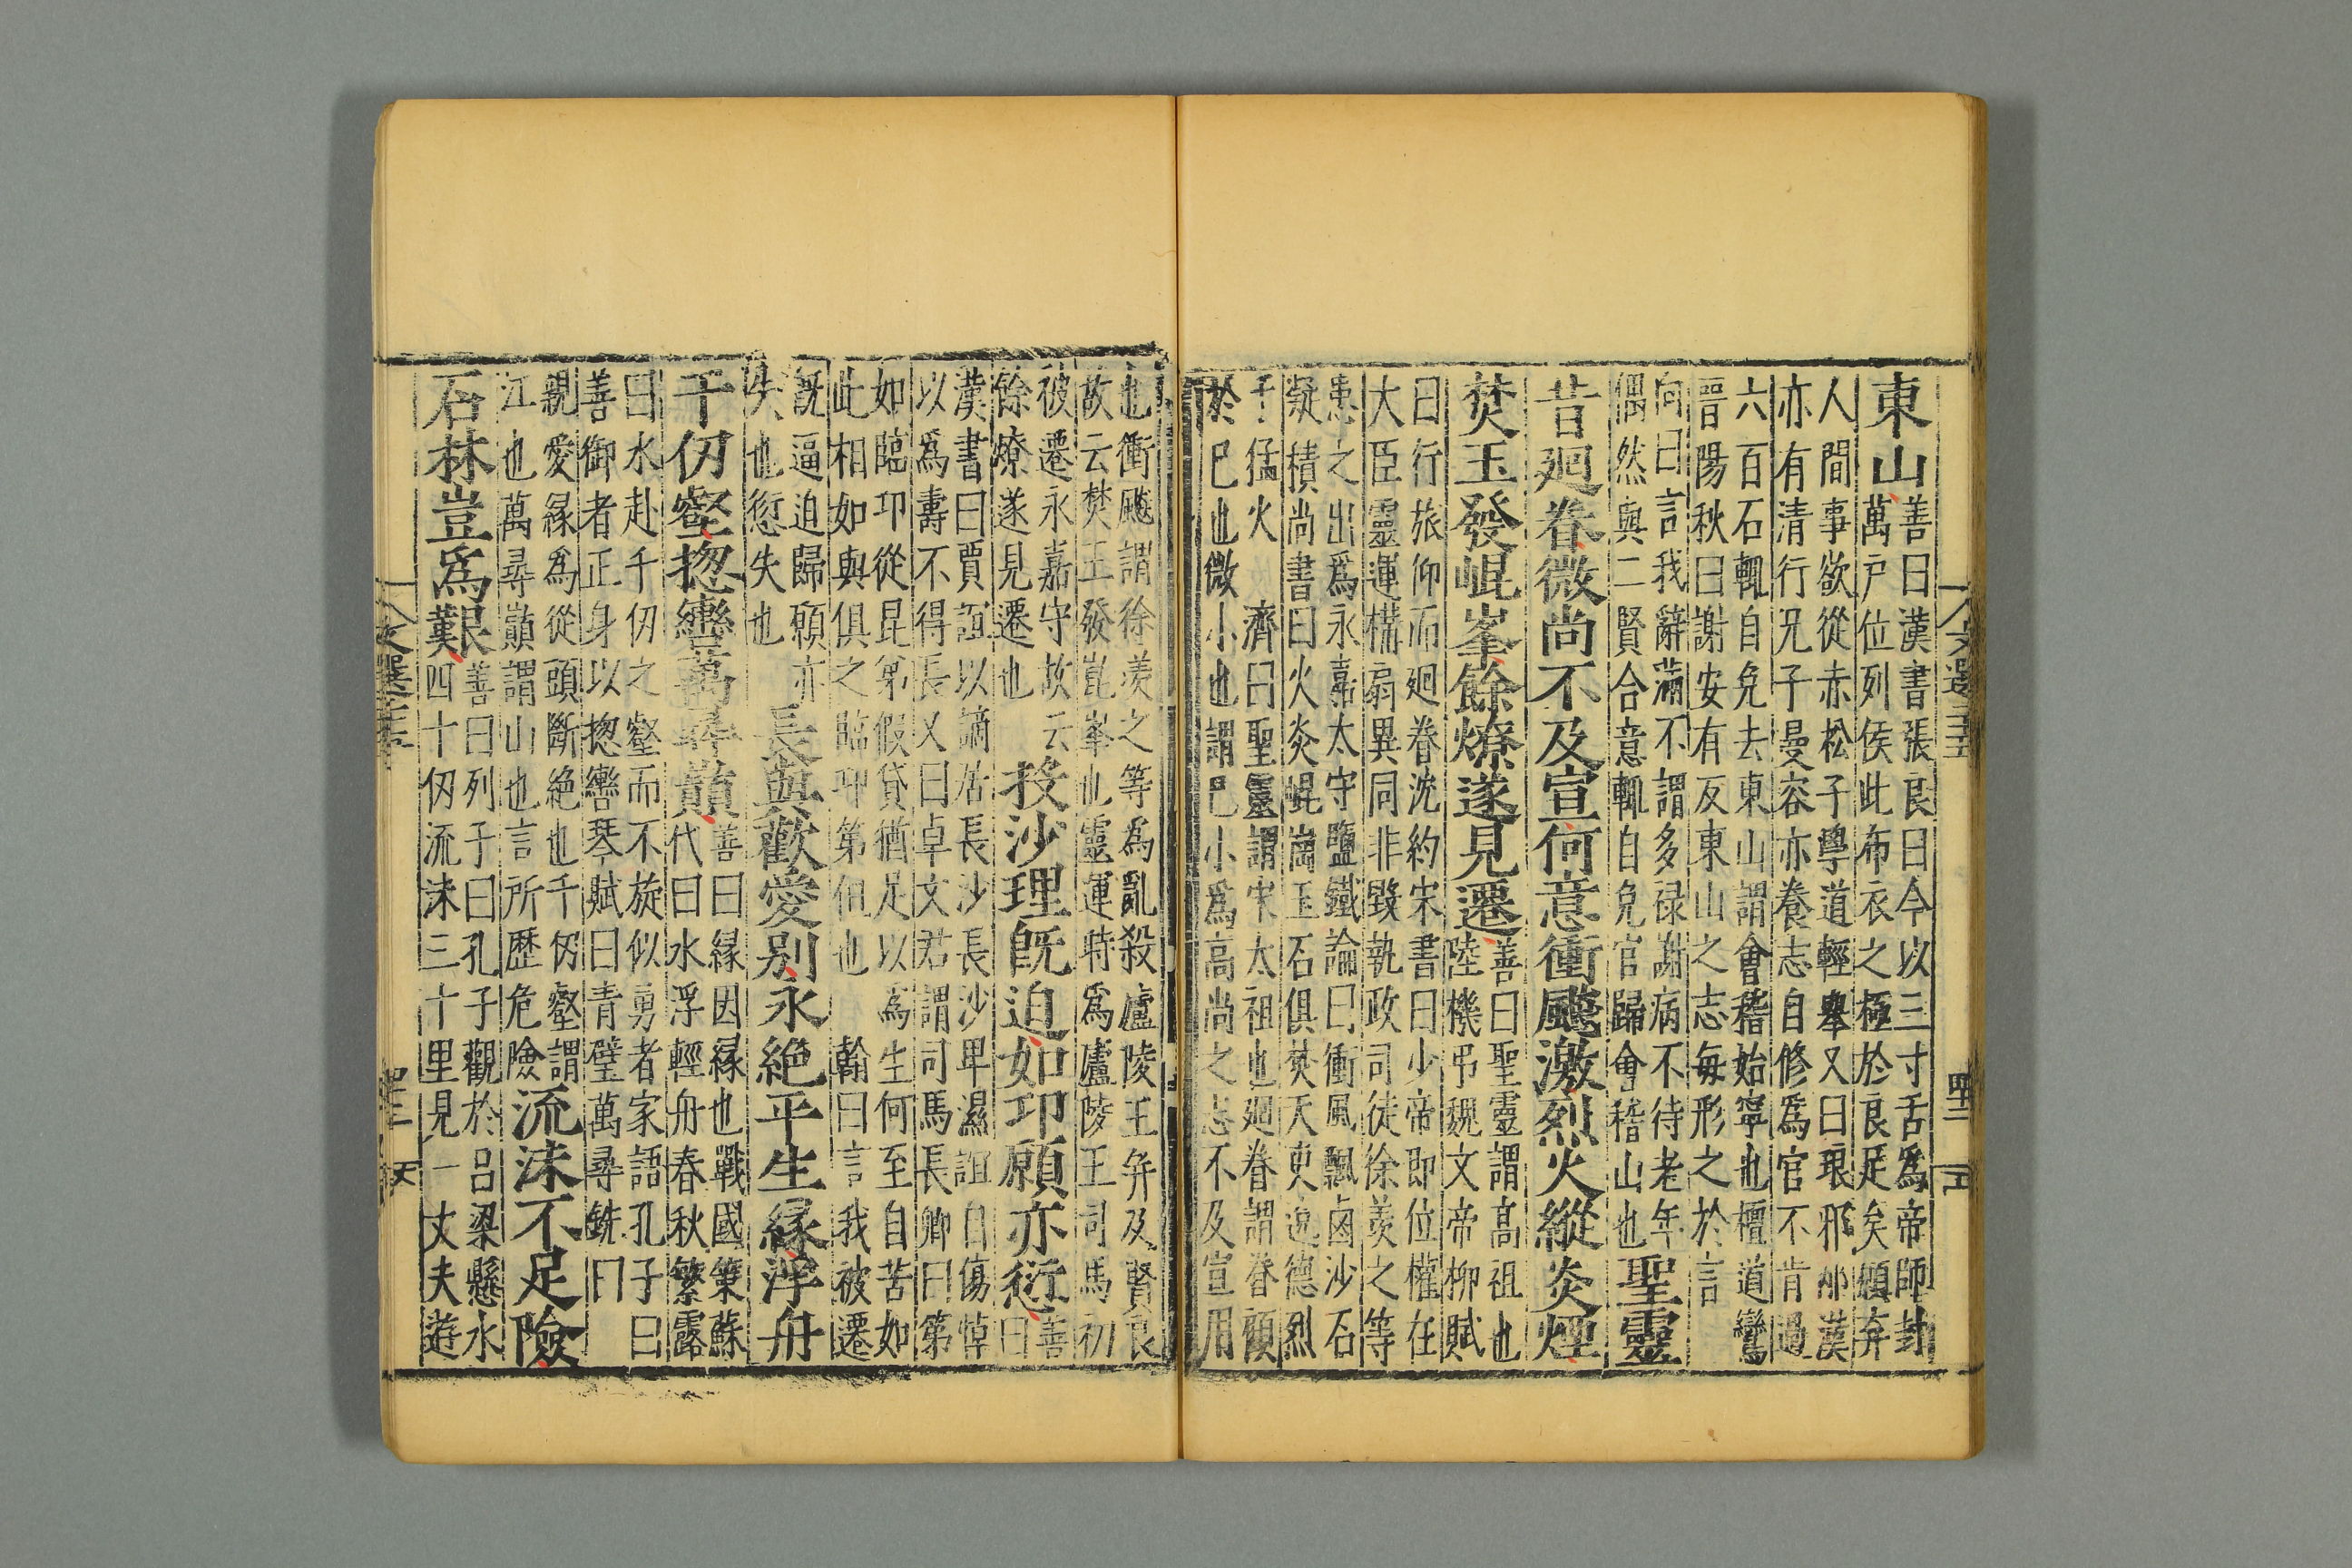 東山善曰漢書張良曰今以三寸舌為帝師封
萬戶位列侯此布衣之極於良足矣願弃
人間事欲從赤松子學道輕舉又曰琅邪邴漢
亦有清行兄子曼容亦養志自修為官不肯過
六百石輒自免去東山謂會稽始寧也檀道鸞
晉陽秋曰謝安有反東山之志每形之於言
向曰言我辭滿不謂多祿謝病不待老年
偶然與二賢合意輒自免官歸會稽山也聖靈
昔迴眷微尚不及宣何意衝飈激烈火縱炎煙
焚玉發崐峯餘燎遂見遷善曰聖靈謂高祖也
陸機弔魏文帝柳賦
曰行旅仰而迴眷沈約宋書曰少帝即位權在
大臣靈運構扇異同非毀執政司徒徐羨之等
患之出爲永嘉太守鹽鐵論曰衝風飄鹵沙石
凝積尚書曰火炎崐崗玉石俱焚天吏逸德烈
于猛火　濟曰聖靈謂宋太祖也迴眷謂眷顧
於已也微小也謂已小爲高尚之志不及宣用
也衝飈謂徐羨之等為亂殺廬陵王弁及賢良
故云焚玉發崑峯也靈運時爲廬陵王司馬初
被遷永嘉守故云
餘燎遂見遷也投沙理既迫如邛願亦愆善
曰
漢書曰賈誼以謫居長沙長沙卑濕誼自傷悼
以為壽不得長又曰卓文君謂司馬長卿曰第
如臨邛從昆弟假貸猶足以為生何至自苦如
此相如與俱之臨邛第但也　翰曰言我被遷
既逼迫歸願亦
失也愆失也長與歡愛别永絶平生緣浮舟
千仞壑揔轡萬尋巔善曰緣因緣也戰國策蘇
代曰水浮輕舟春秋繁露
曰水赴千仞之壑而不旋似勇者家語孔子曰
善御者正身以揔轡琴賦曰青壁萬尋銑曰
親愛緣為從頭斷絶也千仞壑謂
江也萬尋巔謂山也言所歷危險流沫不足險
石林豈爲艱善曰列子曰孔子觀於呂梁懸水
四十仞流沫三十里見一丈夫遊